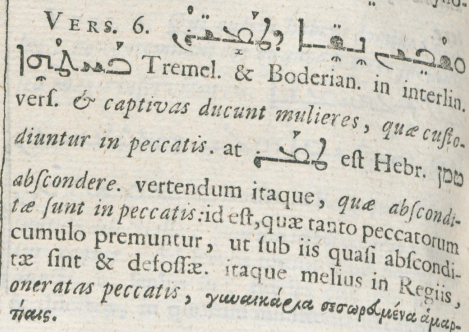 VERS. 6.
Tremel. & Boderian. in interlin.
vers. & captivas ducunt mulieres, quæ custo-
diuntur in peccatis. at est Hebr. טמן
abscondere. vertendum itaque, quæ abscondi-
tæ sunt in peccatis: id est, quæ tanto peccatorum
cumulo premuntur, ut sub iis quasi abscondi-
tæ sint & defossæ. itaque melius in Regiis,
oneratas peccatis, γυναικάρια σεσωρευμένα ἁμαρ-
τίαις.